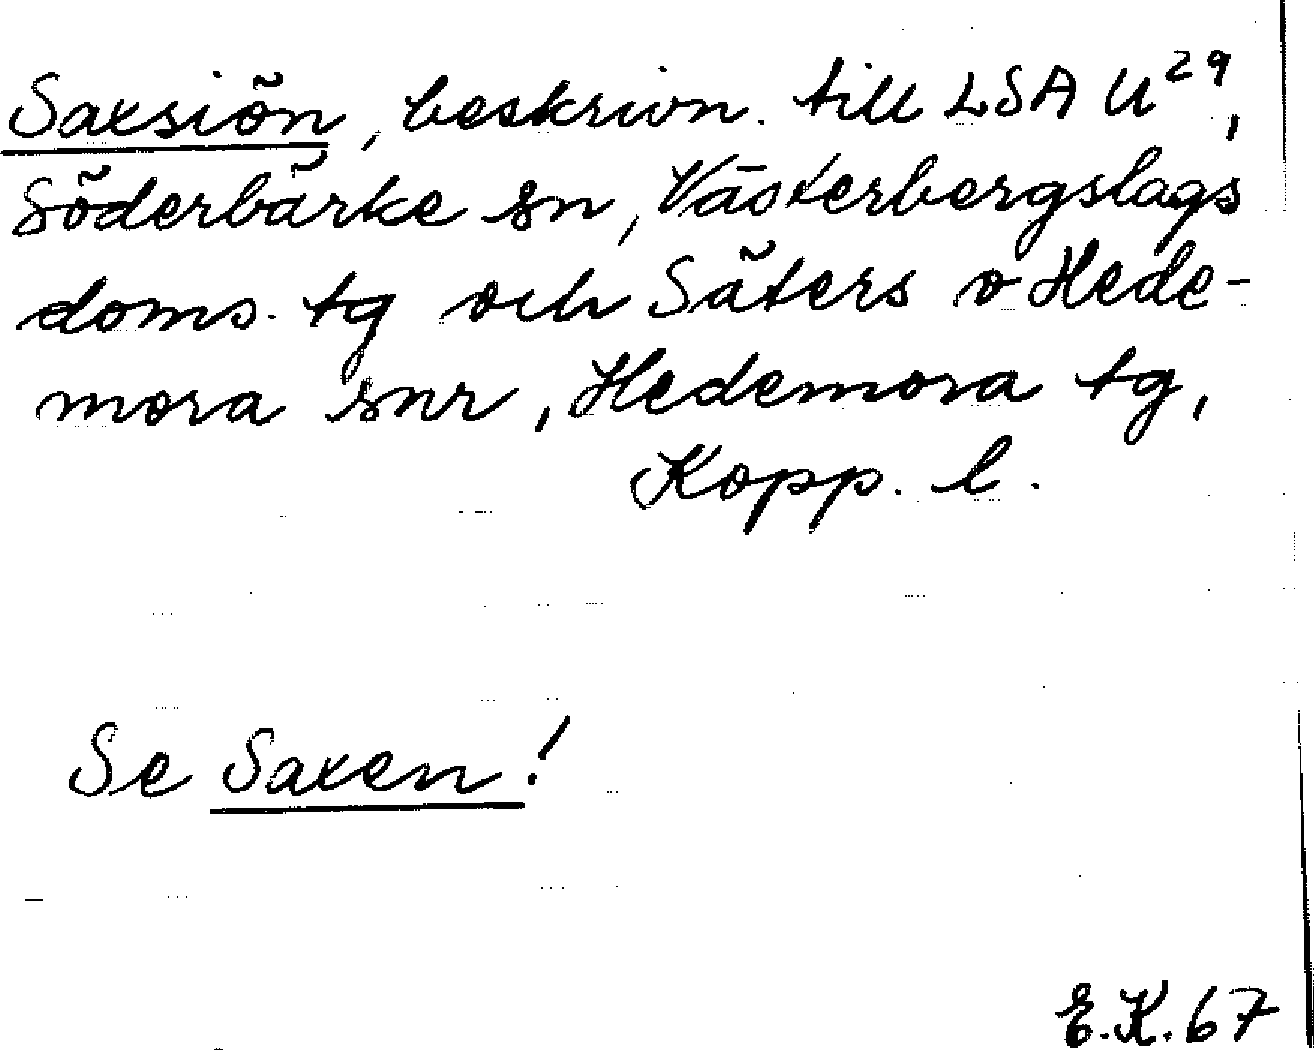 Saxsiön, beskrivn. till LSA U²⁹,
Söderbärke sn, Västerbergslags
doms. tg och Säters o Hede-
mora snr, Hedemora tg,
Kopp. l.
Se Saxen!
E.K. 67